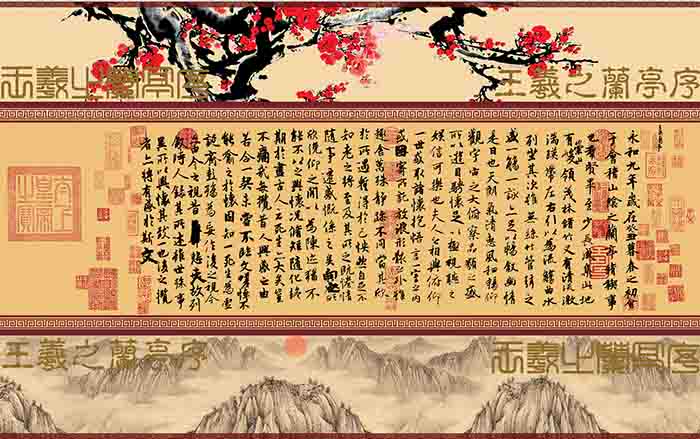 王羲之蘭亭序
王羲之蘭亭序
永和九年歲在癸丑暮春之初會
于會稽山陰之蘭亭脩稧事
也羣賢畢至少長咸集此地
有崇山峻領茂林脩竹又有清流激
湍暎帶左右引以為流觴曲水
列坐其次雖無絲竹管弦之
盛一觴一詠亦足以暢敘幽情
是日也天朗氣清惠風和暢仰
觀宇宙之大俯察品類之盛
所以遊目騁懷足以極視聽之
娛信可樂也夫人之相與俯仰
一世或取諸懷抱悟言一室之內
或因寄所託放浪形骸之外雖
趣舍萬殊靜躁不同當其欣
於所遇蹔得於己怏然自足不
知老之將至及其所之既惓情
隨事遷感慨係之矣向之所
欣俛仰之間以為陳迹猶不
能不以之興懷況脩短隨化終
期於盡古人云死生亦大矣豈
不痛哉每攬昔人興感之由
若合一契未嘗不臨文嗟悼不
能喻之於懷固知一死生為虛
誕齊彭殤為妄作後之視今
亦由今之視昔悲夫故列
敘時人錄其所述雖世殊事
異所以興懷其致一也後之攬
者亦將有感於斯文
太上皇帝之寶
王羲之蘭亭序
王羲之蘭亭序